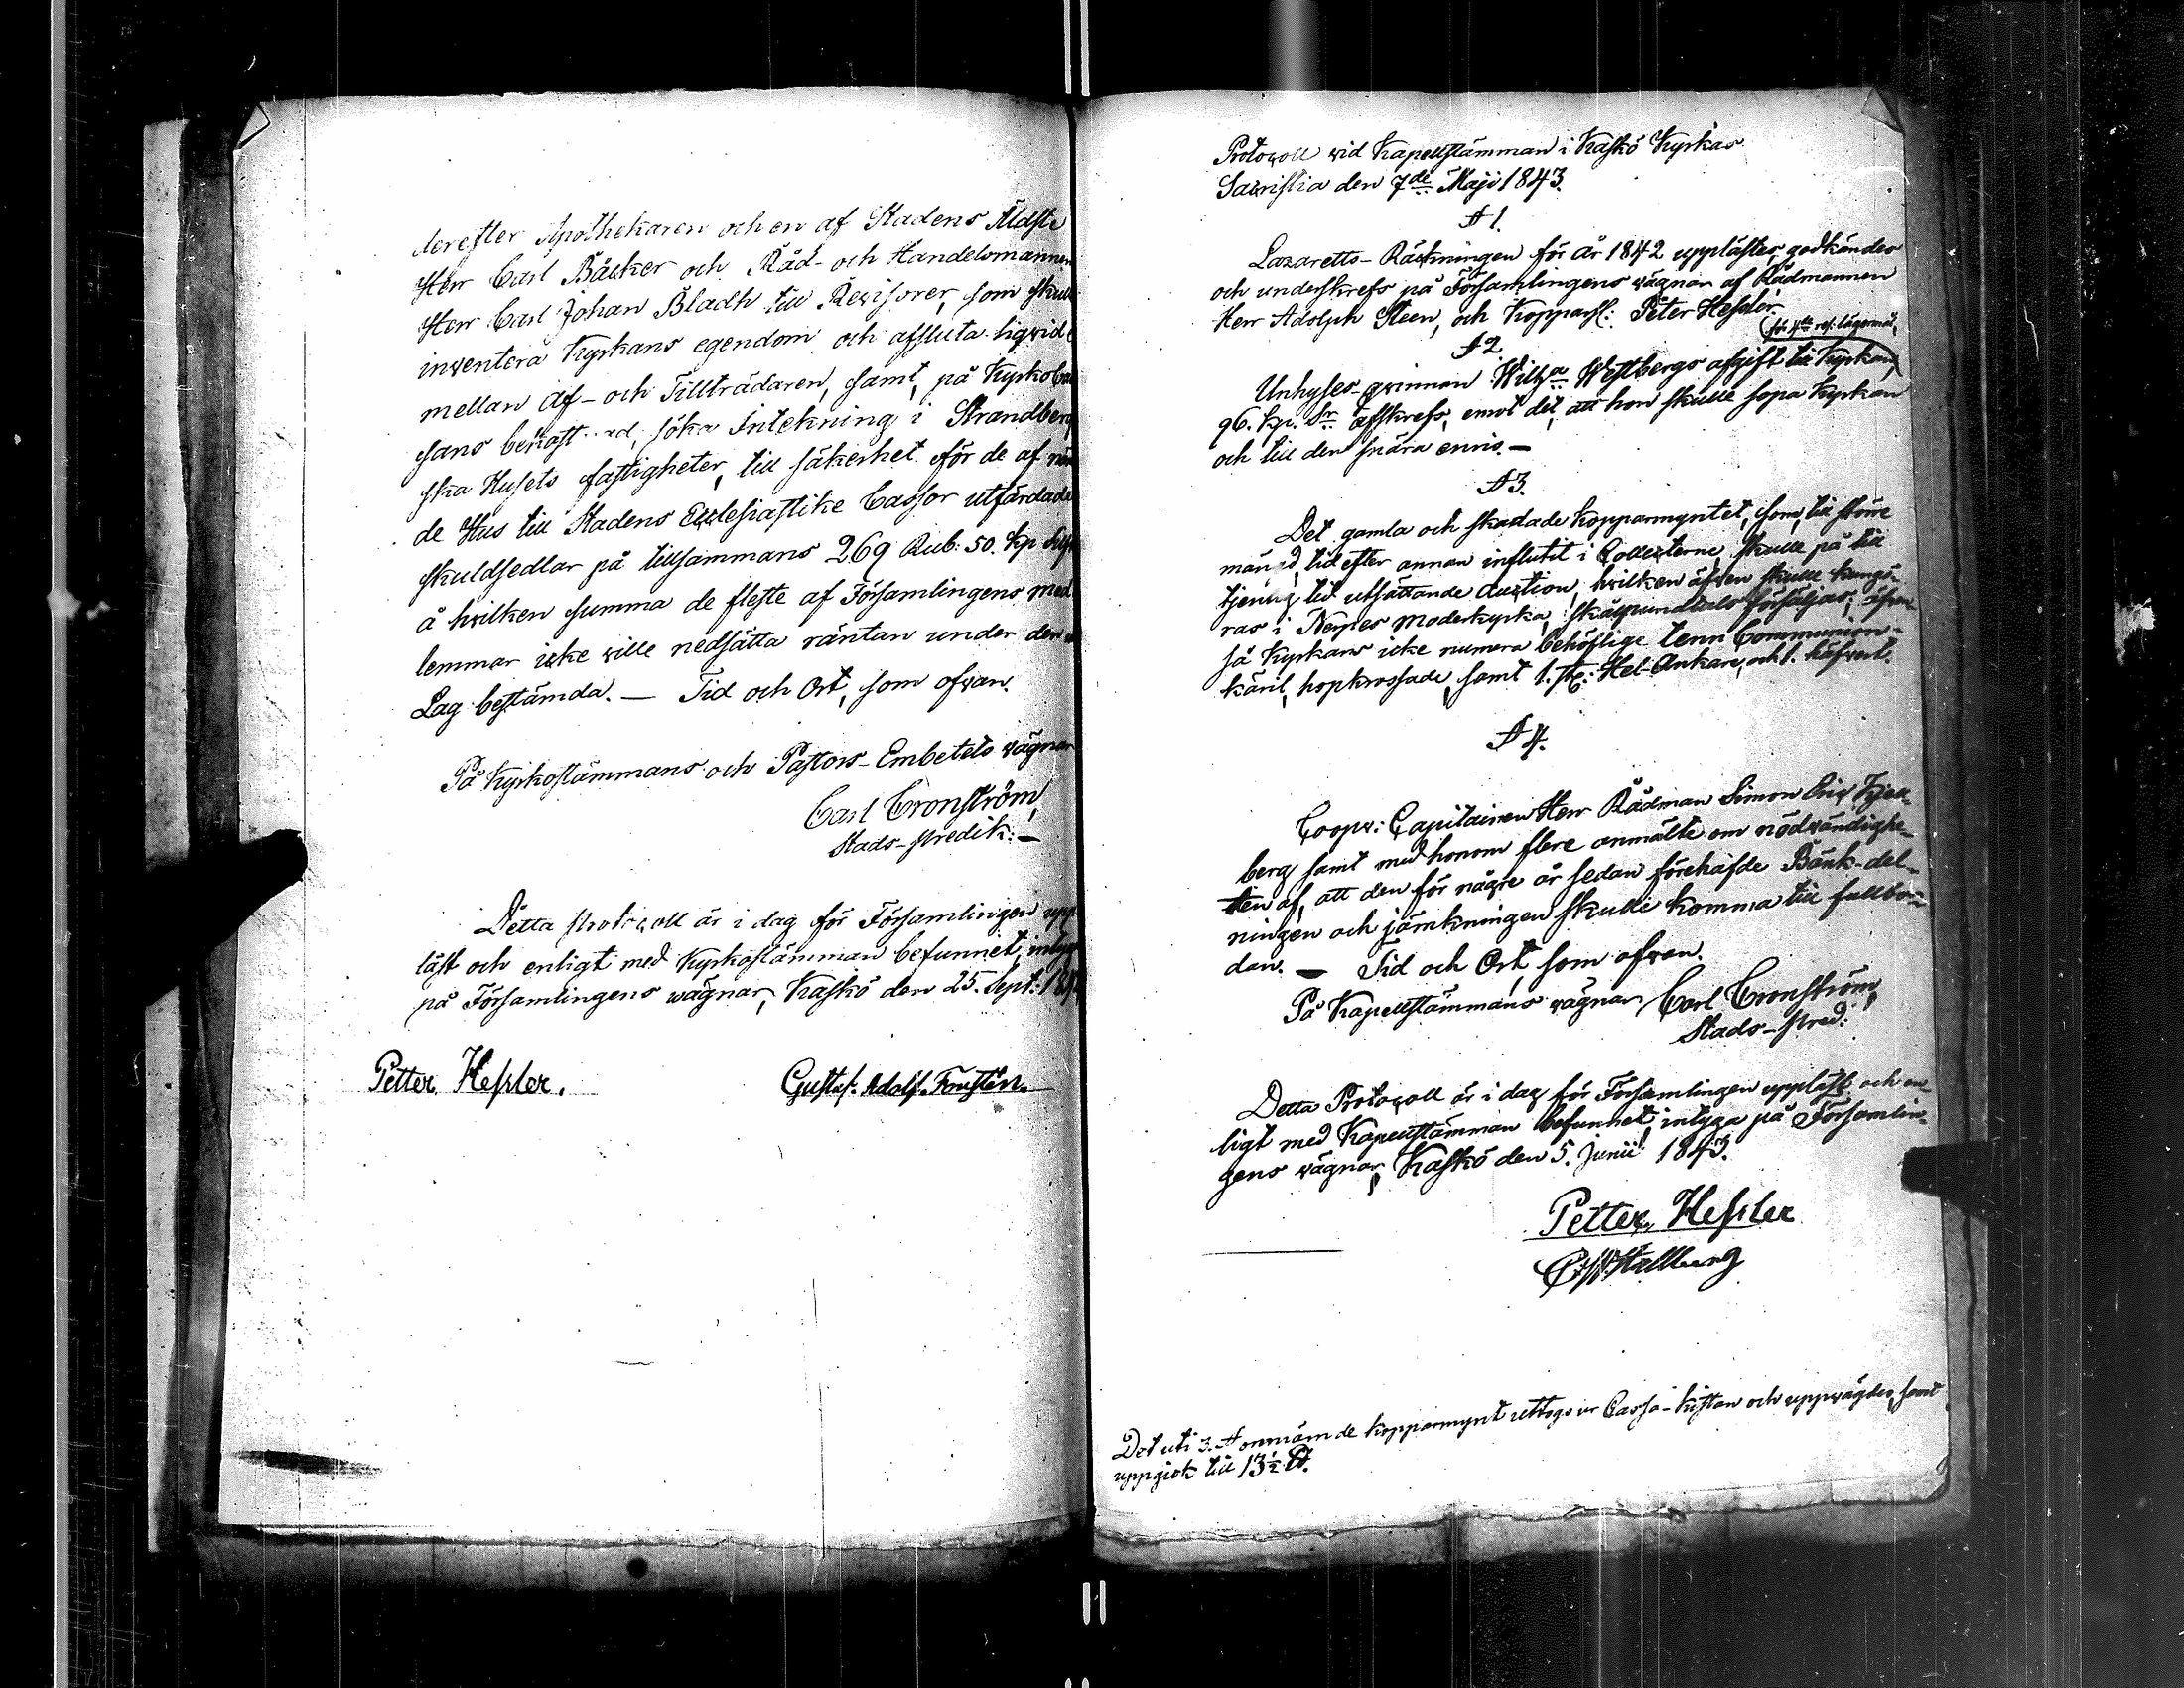 derefter Apothekaren och en af Stadens Äldste
Herr Carl Bäcker och Råd- och Handelsmannen
Herr Carl Johan Bladh till Revisorer, som skulle
inventera Kyrkans egendom och afsluta liqvid
mellan Af- och Tillträdaren, samt, på Kyrko Cas
sans bekostnad, söka Intekning i Strandberg
ska Husets fastigheter, till säkerhet för de af
de Hus till Stadens Ecclesiastike Cassor utfärdade
skuldsedlar på tillsammans 269 Rub: 50. Kp
å hvilken summa de fleste af Församlingens med
lemmar icke ville nedsätta räntan under den
Lag bestämda. — Tid och Ort, som ofvan.
På Kyrkostämmans och Pastors-Embetets vägnar
Carl Cronström,
Stads-Predik: —
Detta Protocoll är i dag för Församlingen upp
läst och enligt med Kyrkostämman befunnet, intyga
på Församlingens wägnar, Kaskö den 25. Sept:
Petter Hessler.
Gustaf. Adolf. Forstén.
Protocoll vid Kapellstämman i Kaskö Kyrkas
Sacristia den 7de Maji 1843.
§ 1.
Lazaretts-Räkningen för år 1842 upplästes, godkändes
och underskrefs på Församlingens vägnar af Rådmannen
Herr Adolph Steen, och Kopparsl: Peter Hessler.
§ 2.
Unhyses-qvinnan Wilh:a Westbergs afgift till Kyrkan,
96. Kp. Sr afskrefs, emot det, att hon skulle sopa Kyrkan
och till den snära enris. —
§ 3.
Det gamla och skadade kopparmyntet, som, till större
mängd, tid efter annan influtit i Collecterne, skulle på till
tjenlig tid utsättande Auction, hvilken äfven skulle kungö-
ras i Nerpes Moderkyrka, skålpundtals försäljas; äfven
så Kyrkans icke numera behöflige tenn Communion-
käril, hopkrossade, samt 1. st: Hel-Ankare, och 1. häfvert.
§ 4.
Coopv: Capitainen Herr Rådman Simon Eric Kjell-
berg samt med honom flere anmälte om nödvändighe-
ten af, att den för någre år sedan förehafde Bänk-del-
ningen och jämkningen skulle komma till fullbor-
dan. — Tid och Ort, som ofvan.
På Kapellstämmans vägnar, Carl Cronström,
Stads-Pred:
Detta Protocoll är i dag för Församlingen uppläst, och en-
ligt med Kapellstämman befunnet, intyga på Församlin-
gens vägnar, Kaskö den 5. Junii 1843.
Petter Hessler
Det uti 3. § omnämnde kopparmynt uttogs ur Cassa-kistan och uppvägdes, samt
uppgick till 13½ ℔.